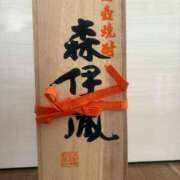 壺焼酎
森伊蔵